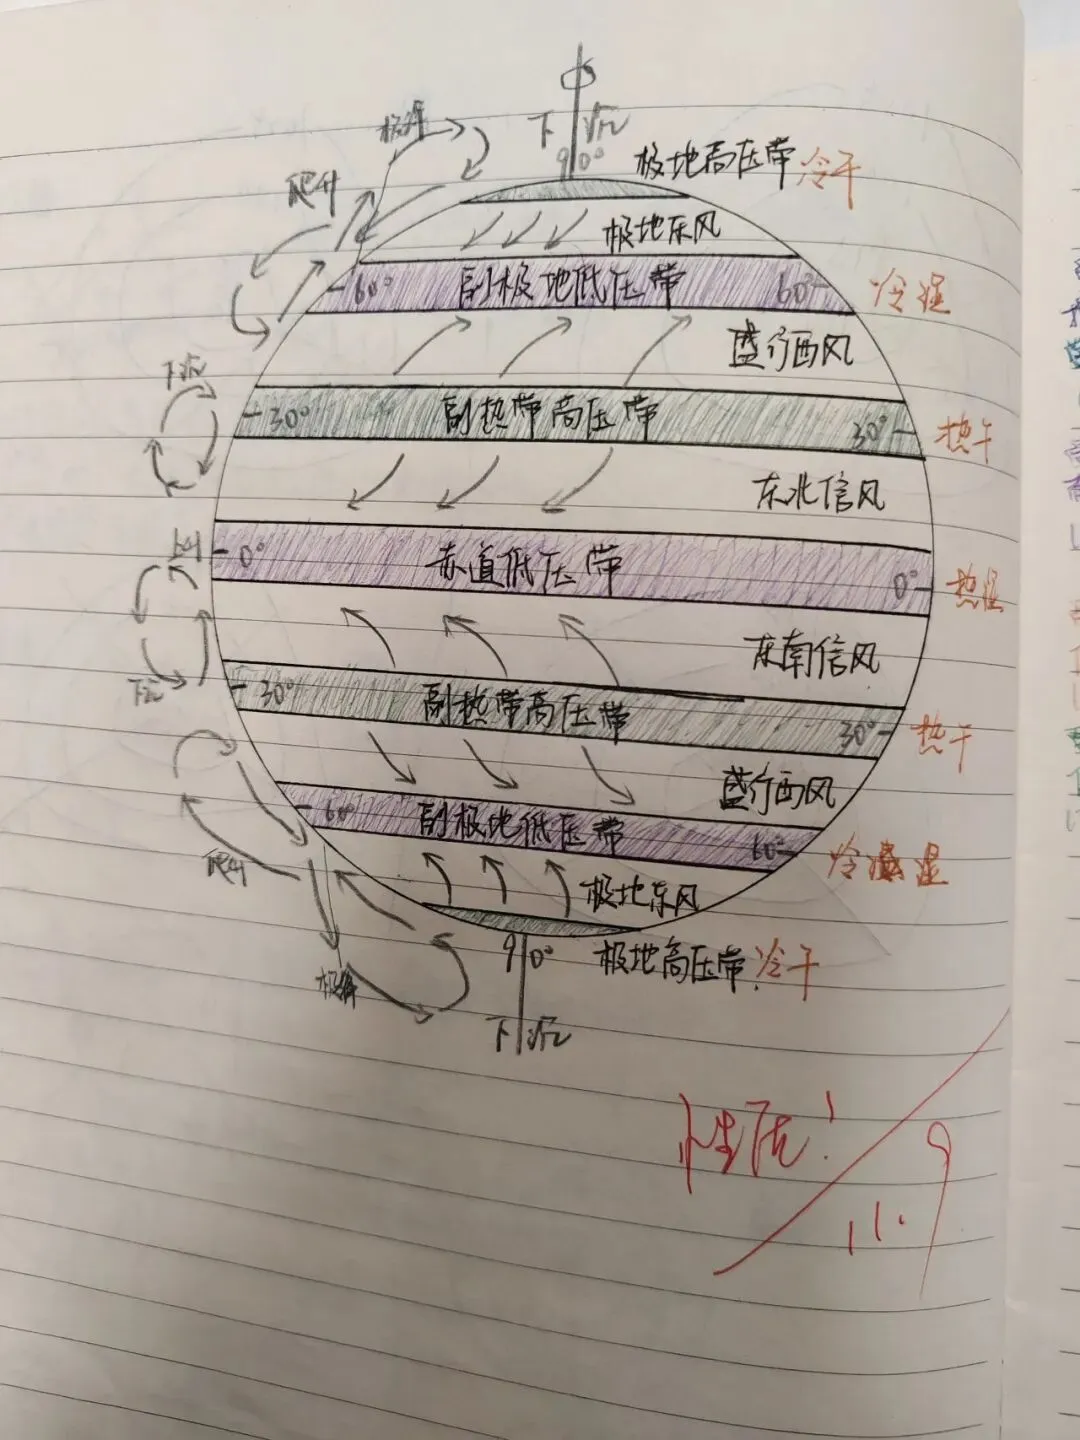 下沉
90°
极地高压带 冷干
爬升
极地东风
60° 副极地低压带 60° 冷湿
盛行西风
下沉
30° 副热带高压带 30° 热干
东北信风
0° 赤道低压带 0° 热湿
东南信风
下沉
30° 副热带高压带 30° 热干
盛行西风
60° 副极地低压带 60° 冷湿
爬升
极地东风
90°
极地高压带 冷干
下沉
性质!
11.9